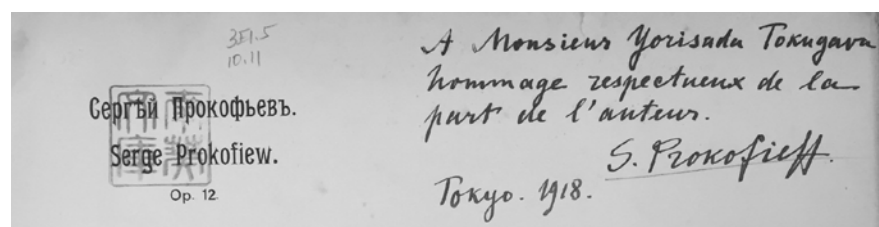 3E1.5
10.11
Сергѣй Прокофьевъ.
Serge Prokofiew.
Op. 12.
A Monsieur Yorisada Tokugava
hommage respectueux de la
part de l'auteur.
S. Prokofieff.
Tokyo. 1918.